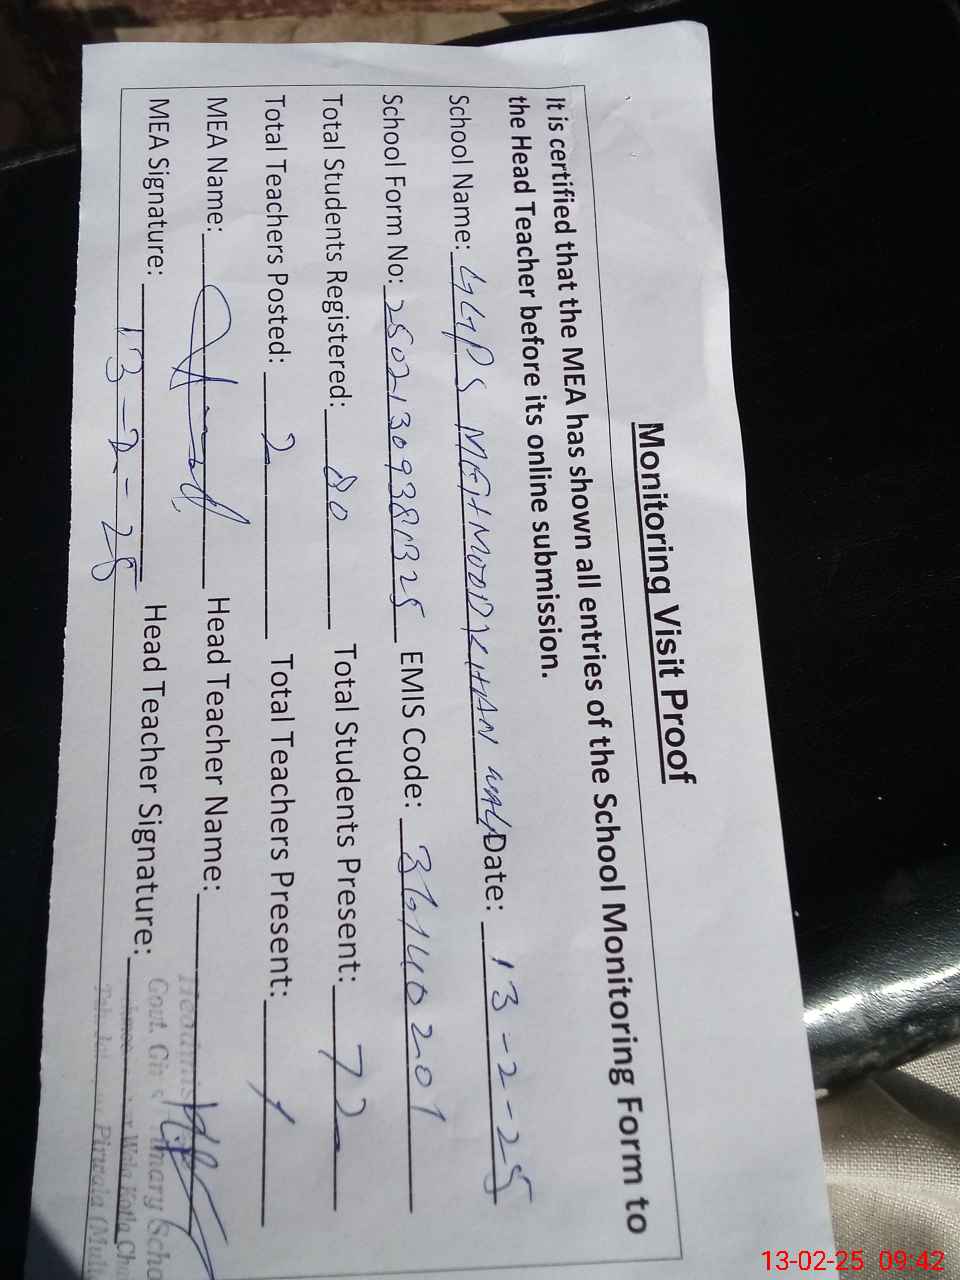 Monitoring Visit Proof
It is certified that the MEA has shown all entries of the School Monitoring Form to
the Head Teacher before its online submission.
School Name: GGPS MEHMOOD KHAN WALI Date: 13-2-25
School Form No: EMIS Code: 36140201
Total Students Registered: 80 Total Students Present: 72
Total Teachers Posted: 2 Total Teachers Present: 1
MEA Name: Head Teacher Name:
MEA Signature: 13-2-25 Head Teacher Signature:
Govt. Primary
Wala Kotla
13-02-25 09:42